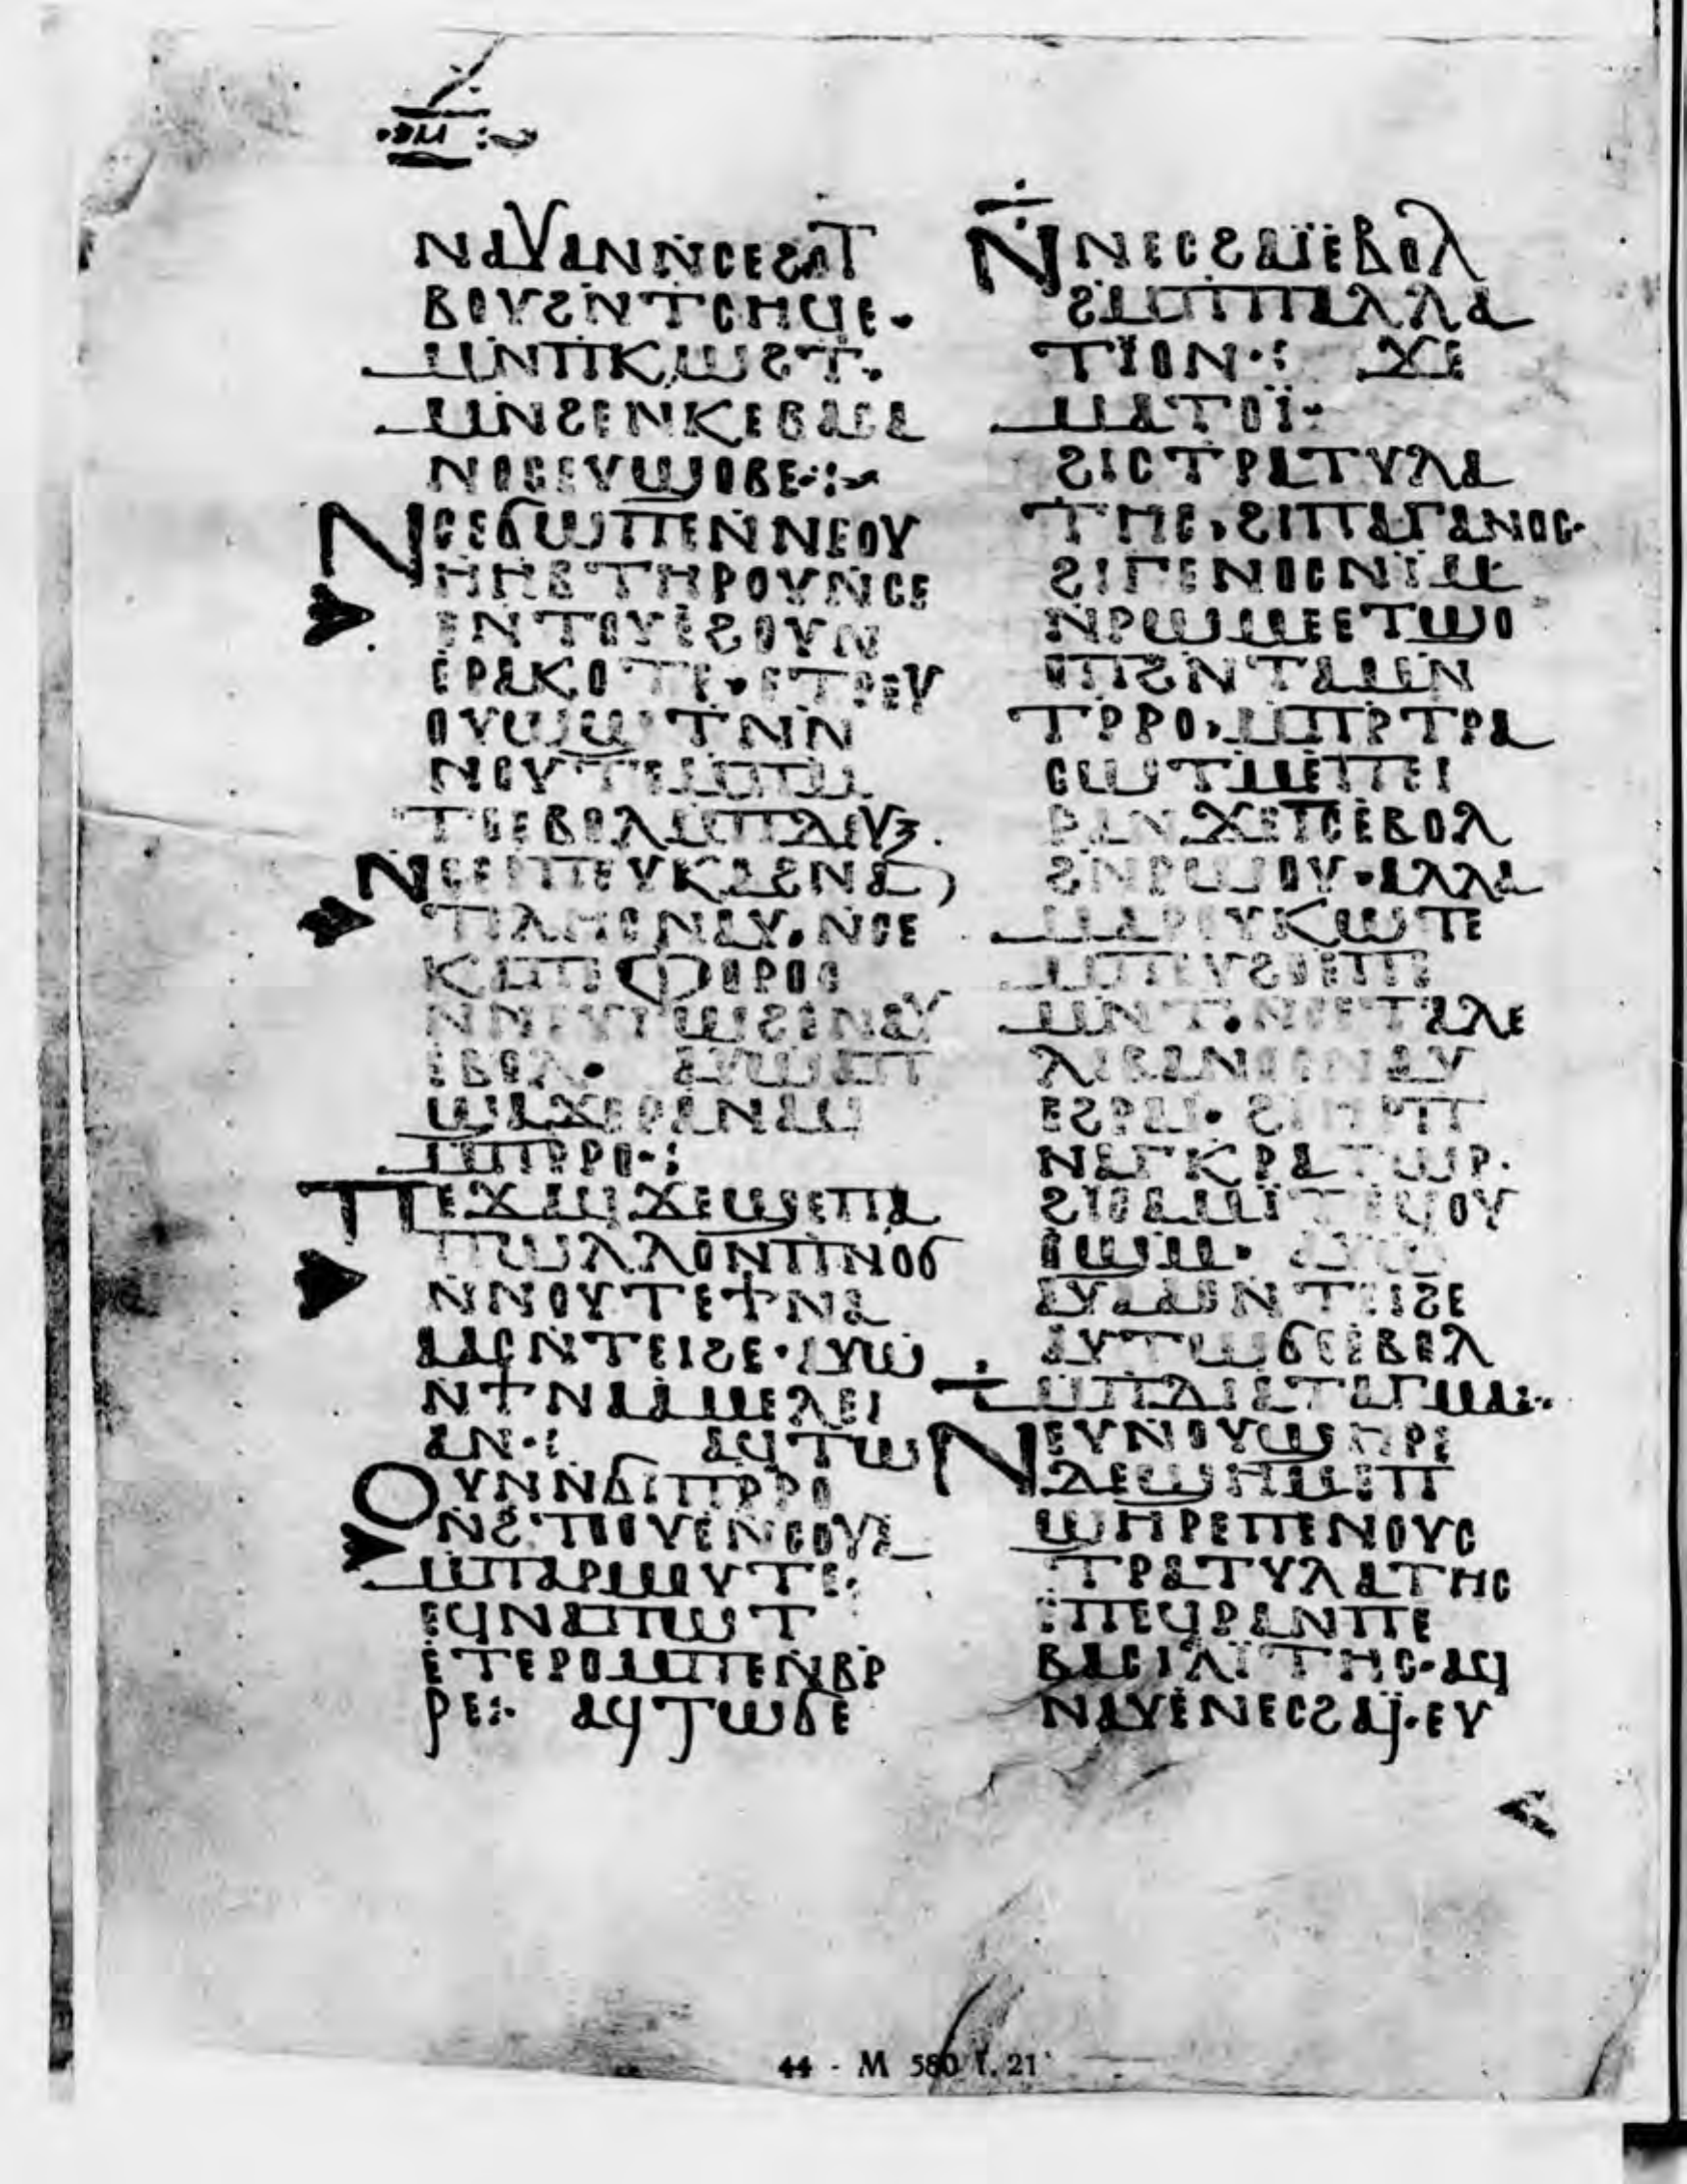 ⲙⲁ
ⲛⲁⲩⲁⲛⲛ̄ⲥⲉϩⲟⲧ
ⲃⲟⲩϩⲛ̄ⲧⲥⲏϥⲉ·
ⲙⲛ̄ⲡⲕⲱϩⲧ·
ⲙⲛ̄ϩⲉⲛⲕⲉⲃⲁⲥⲁ
ⲛⲟⲥⲉⲩϣⲟⲃⲉ·:
ⲛⲥⲉϭⲱⲡⲉⲛ̄ⲛⲉⲟⲩ
ⲏⲏⲃⲧⲏⲣⲟⲩⲛ̄ⲥⲉ
ⲉⲛⲧⲟⲩⲉ̇ϩⲟⲩⲛ
ⲉⲣⲁⲕⲟⲧⲉ·ⲉⲧⲣⲉⲩ
ⲟⲩⲱϣⲧⲛⲛ̄
ⲛⲟⲩⲧⲉⲙ̄ⲡⲙ̄
ⲧⲟⲉⲃⲟⲗⲙ̄ⲡⲇⲉⲩⳅ
ⲛⲥⲉⲣⲡⲉⲩⲕⲁϩⲛⲁ
ⲡⲗⲏⲥⲛⲁⲩ·ⲛ̄ⲥⲉ
ⲕⲁⲡⲫⲟⲣⲟⲥ
ⲛⲛⲉⲩⲓⲱϩⲉⲛⲁⲩ
ⲉⲃⲟⲗ· ⲁⲩⲱⲁⲡ
ϣⲁϫⲉⲣⲁⲛⲁϥ
ⲙ̄ⲡⲣⲣⲟ·:
ⲡⲉϫⲁϥϫⲉϣⲉⲡⲁ
ⲡⲱⲗⲗⲟⲛⲡⲛⲟϭ
ⲛ̄ⲛⲟⲩⲧⲉϯⲛⲁ
ⲁⲁⲥⲛ̄ⲧⲉⲓϩⲉ·ⲁⲩⲱ
ⲛ̄ϯⲛⲁⲁⲙⲉⲗⲉⲓ
ⲁⲛ·: ⲁϥⲧⲱ
ⲟⲩⲛⲛ̄ϭⲓⲡⲣⲣⲟ
ⲛϩⲧⲟⲟⲩⲉⲛ̄ⲥⲟⲩⲁ
ⲙ̄ⲡⲁⲣⲙⲟⲩⲧⲉ·
ⲉϥⲛⲁⲡⲱⲧ
ⲉⲧⲉⲣⲟⲙⲡⲉⲛ̄ⲃⲣ
ⲣⲉ:· ⲁϥⲧⲱϭⲉ
ⲛ̄ⲛⲉⲥϩⲁⲓ̈ⲉ̇ⲃⲟⲗ
ϩⲓⲙ̄ⲡⲡⲁⲗⲗⲁ
ⲧⲓⲟⲛ·: ϫⲉ
ⲙⲁⲧⲟⲓ̈:
ϩⲓⲥⲧⲣⲁⲧⲩⲗⲁ
ⲧⲏⲥ·ϩⲓⲡⲁⲅⲁⲛⲟⲥ·
ϩⲓⲅⲉⲛⲟⲥⲛⲓ̈ⲙ
ⲛ̄ⲣⲱⲙⲉⲉⲧϣⲟ
ⲟⲡϩⲛ̄ⲧⲁⲙⲛ̄
ⲧⲣ̄ⲣⲟ·ⲙ̄ⲡⲣ̄ⲧⲣⲁ
ⲥⲱⲧⲙ̄ⲉⲡⲉⲓ
ⲣⲁⲛϫⲉⲓ̅ⲥ̅ⲉ̇ⲃⲟⲗ
ϩⲛ̄ⲣⲱⲟⲩ·ⲁⲗⲗⲁ
ⲙⲁⲣⲟⲩⲕⲱⲧⲉ
ⲙ̄ⲡⲉⲩϩⲟⲉⲓⲧⲉ
ⲙⲛ̄ⲧ·ⲛⲥⲉⲧⲁⲗⲉ
ⲗⲓⲃⲁⲛⲟⲥⲛⲁⲩ
ⲉϩⲣⲁⲓ· ϩⲓⲏⲣⲡ
ⲛⲁⲅⲕⲣⲁⲧⲱⲣ·
ϩⲓⲥⲁⲙⲓ̈ⲧⲉϥⲟⲩ
ⲟϣⲙ· ⲁⲩⲱ
ⲁⲩⲁⲁⲥⲛ̄ⲧⲉⲓϩⲉ
ⲁⲩⲧⲱϭⲉⲉ̇ⲃⲟⲗ
ⲙ̄ⲡⲇⲓⲁⲧⲁⲅⲙⲁ:·
ⲛⲉⲩⲛ̄ⲟⲩϣⲏⲣⲉ
ⲇⲉϣⲏⲙⲉⲡ
ϣⲏⲣⲉⲡⲉⲛⲟⲩⲥ
ⲧⲣⲁⲧⲩⲗⲁⲧⲏⲥ
ⲉⲡⲉϥⲣⲁⲛⲡⲉ
ⲃⲁⲥⲓⲗⲓ̈ⲧⲏⲥ·ⲁϥ
ⲛⲁⲩⲉ̇ⲛⲉⲥϩⲁⲓ̈·ⲉⲩ
44 - M 580 f. 21ᵛ